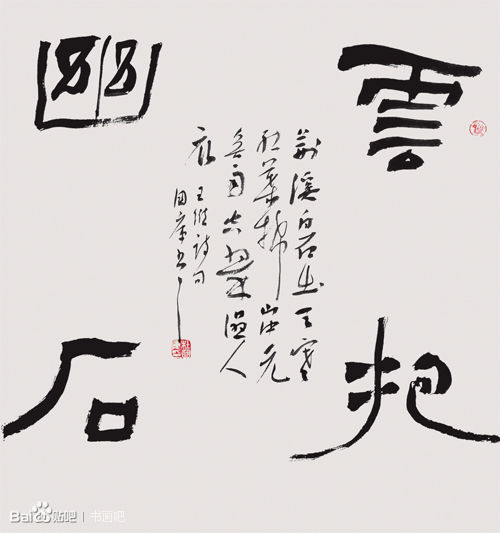 雲抱
幽石
荆溪白石出天寒
红葉稀山路元
無雨空翠濕人
衣
王維詩句
Bai du 贴吧 | 书画吧